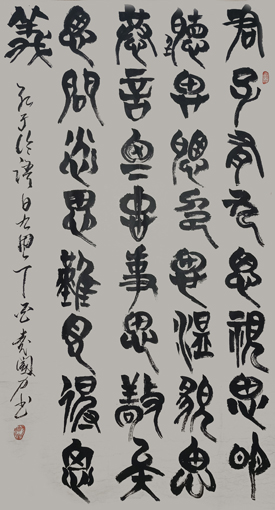 君子有九思視思明
聽思聰色思溫貌思
恭言思忠事思敬疑
思問忿思難見得思
義
孔子論語曰九思丁酉袁國書